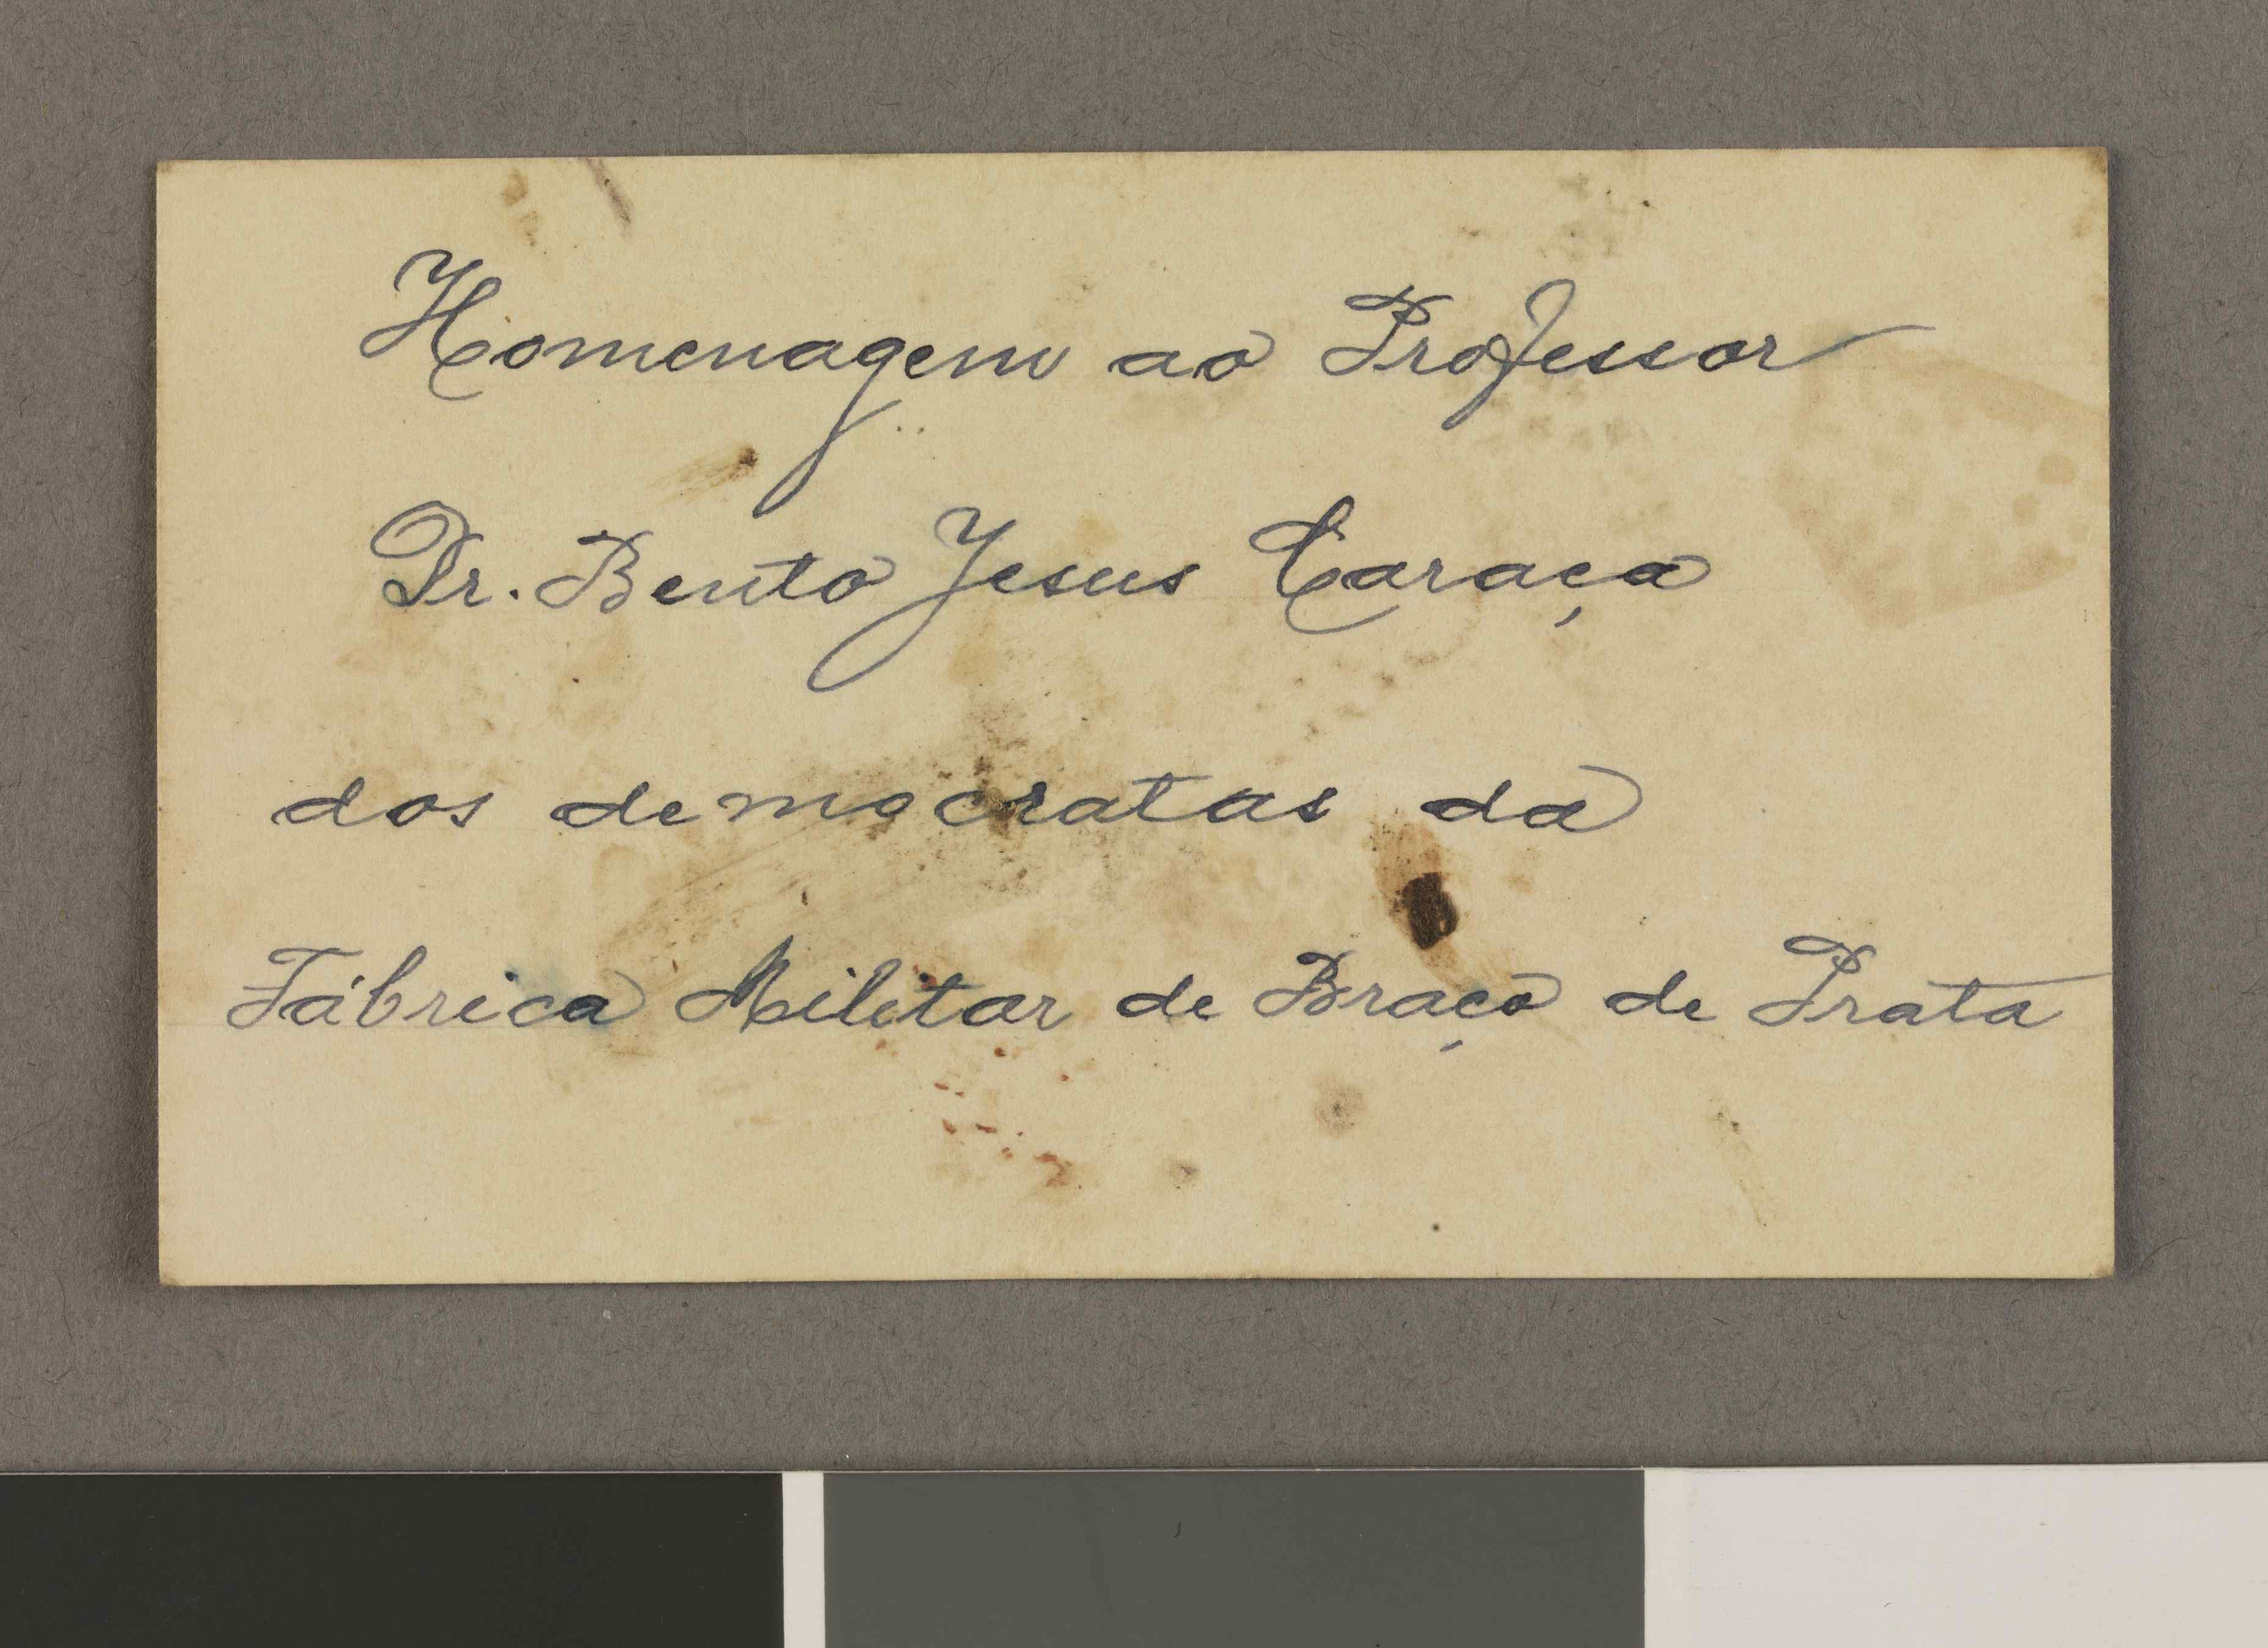 Homenagem ao Professor
Dr. Bento Jesus Caraça
dos democratas da
Fábrica Militar de Braço de Prata